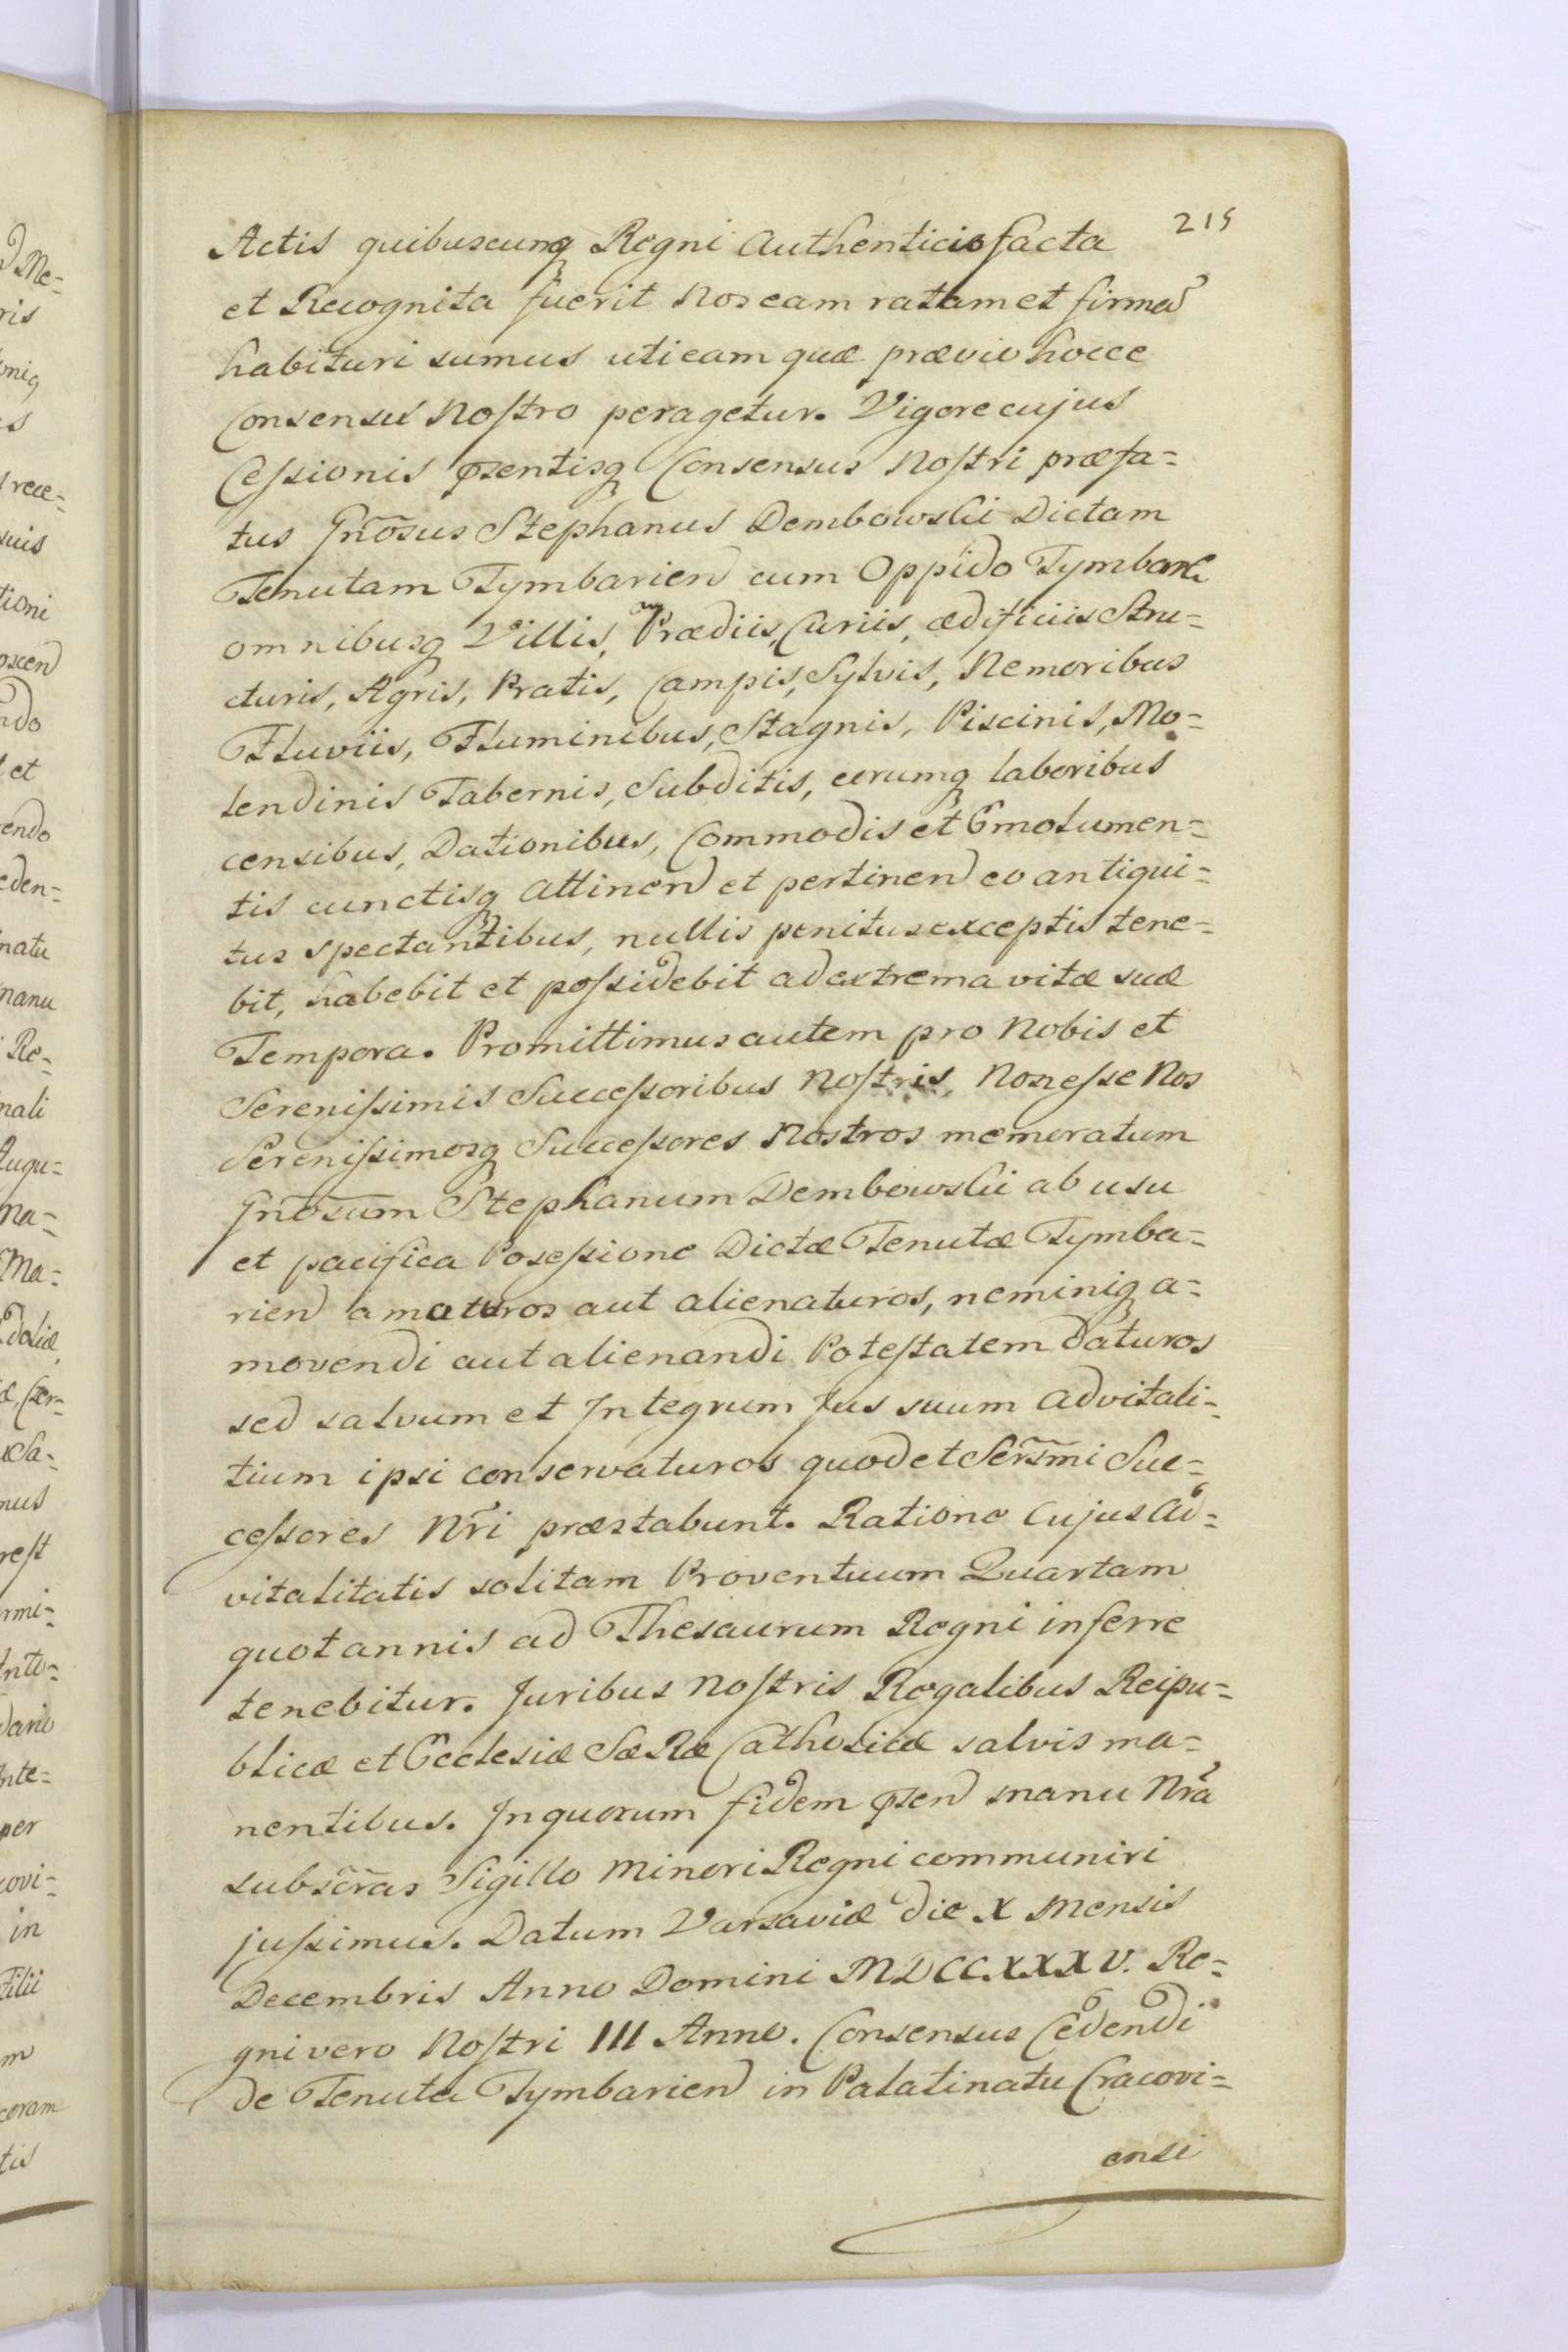 215
Actis quibuscunq Regni Authenticis facta
et Recognita fuerit Nos eam ratam et firmã
habituri sumus uti eam quæ prævio hocce
Consensu Nostro peragetur. Vigore cujus
Cessionis pñtisq Consensus Nostri præfa=
tus Gñosus Stephanus Dembowski Dictam
Tenutam Tymbarien cum Oppido Tymbark
omnibusq Villis, Prædiis, Curiis, ædificiis Stru=
cturis, Agris, Pratis, Campis, Sylvis, Nemoribus
Fluviis, Fluminibus, Stagnis, Piscinis, Mo=
lendinis Tabernis, Subditis, eorumq laboribus
censibus, Dationibus, Commodis et Emolumen=
tis cunctisq Attinen et pertinen eo antiqui=
tus spectantibus, nullis penitus exceptis tene=
bit, habebit et possidebit ad extrema vitæ suæ
Tempora. Promittimus autem pro Nobis et
Serenissimis Successoribus Nostris, Non esse Nos
Serenissimosq Successores Nostros memoratum
Gñosum Stephanum Dembowski ab usu
et pacifica Posessione Dictæ Tenutæ Tymba=
rien amoturos aut alienaturos, neminiq a=
movendi aut alienandi Potestatem daturos
sed salvum et Integrum Jus suum advitali=
tium ipsi conservaturos quod et Serẽmi Suc=
cessores Nri præstabunt. Ratione cujus Ad=
vitalitatis solitam Proventuum Quartam
quotannis ad Thesaurum Regni inferre
tenebitur. Juribus Nostris Regalibus Reipu=
blicæ et Ecclesiæ SæRæ Catholicæ salvis ma=
nentibus. In quorum fidem psen manu Nrã
subscr̃as Sigillo Minori Regni communiri
jussimus. Datum Varsaviæ die X Mensis
Decembris Anno Domini MDCCXXXV. Re=
gni vero Nostri III Anno. Consensus Cedendi
de Tenuta Tymbarien in Palatinatu Cracovi=
ensi